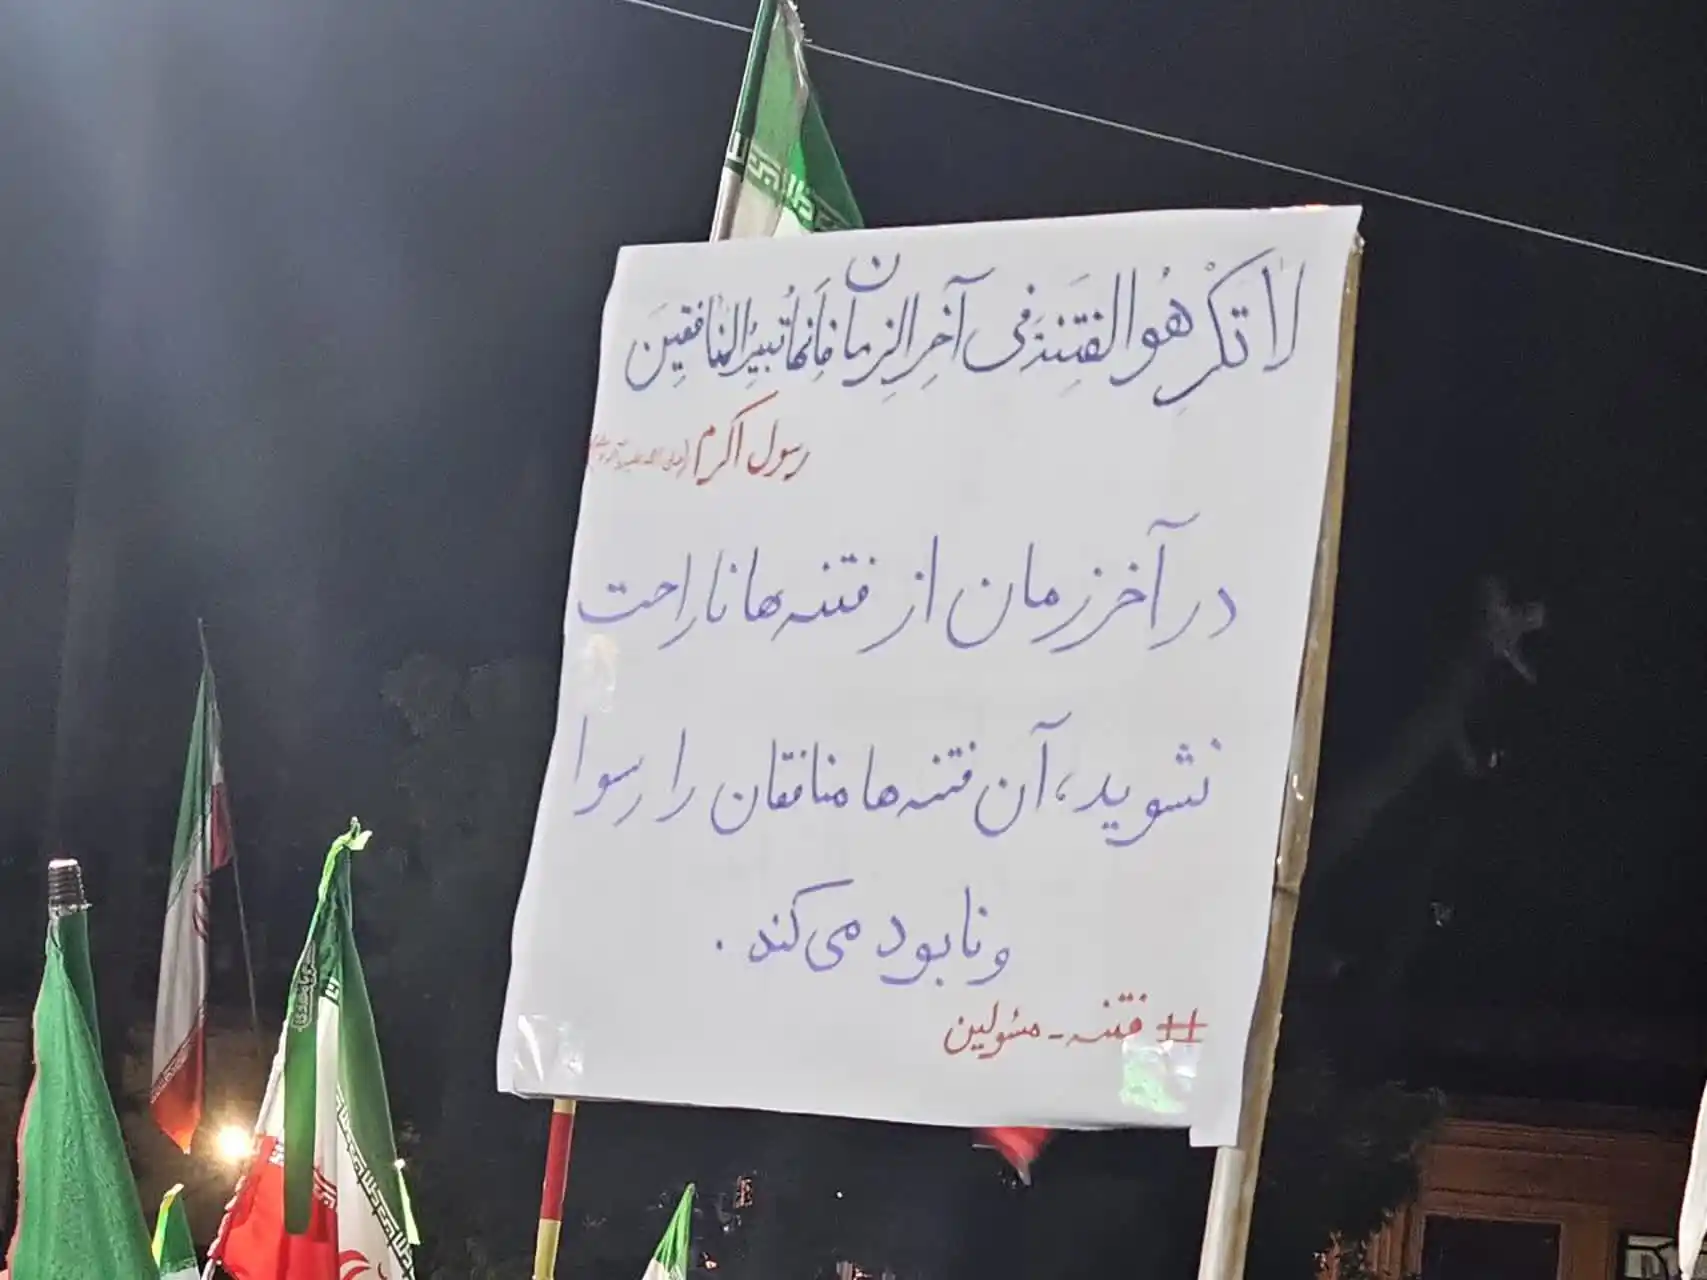 لا تَكْرِهُوا الفِتنَةَ فی آخِرِ الزمان فَاِنَّها تُبیرُ المُنافِقینَ
رسول اکرم (صلی الله علیه وآله وسلم)
در آخر زمان از فتنه ها ناراحت
نشوید، آن فتنه ها منافقان را رسوا
و نابود می کند .
# فتنه - مسئولین